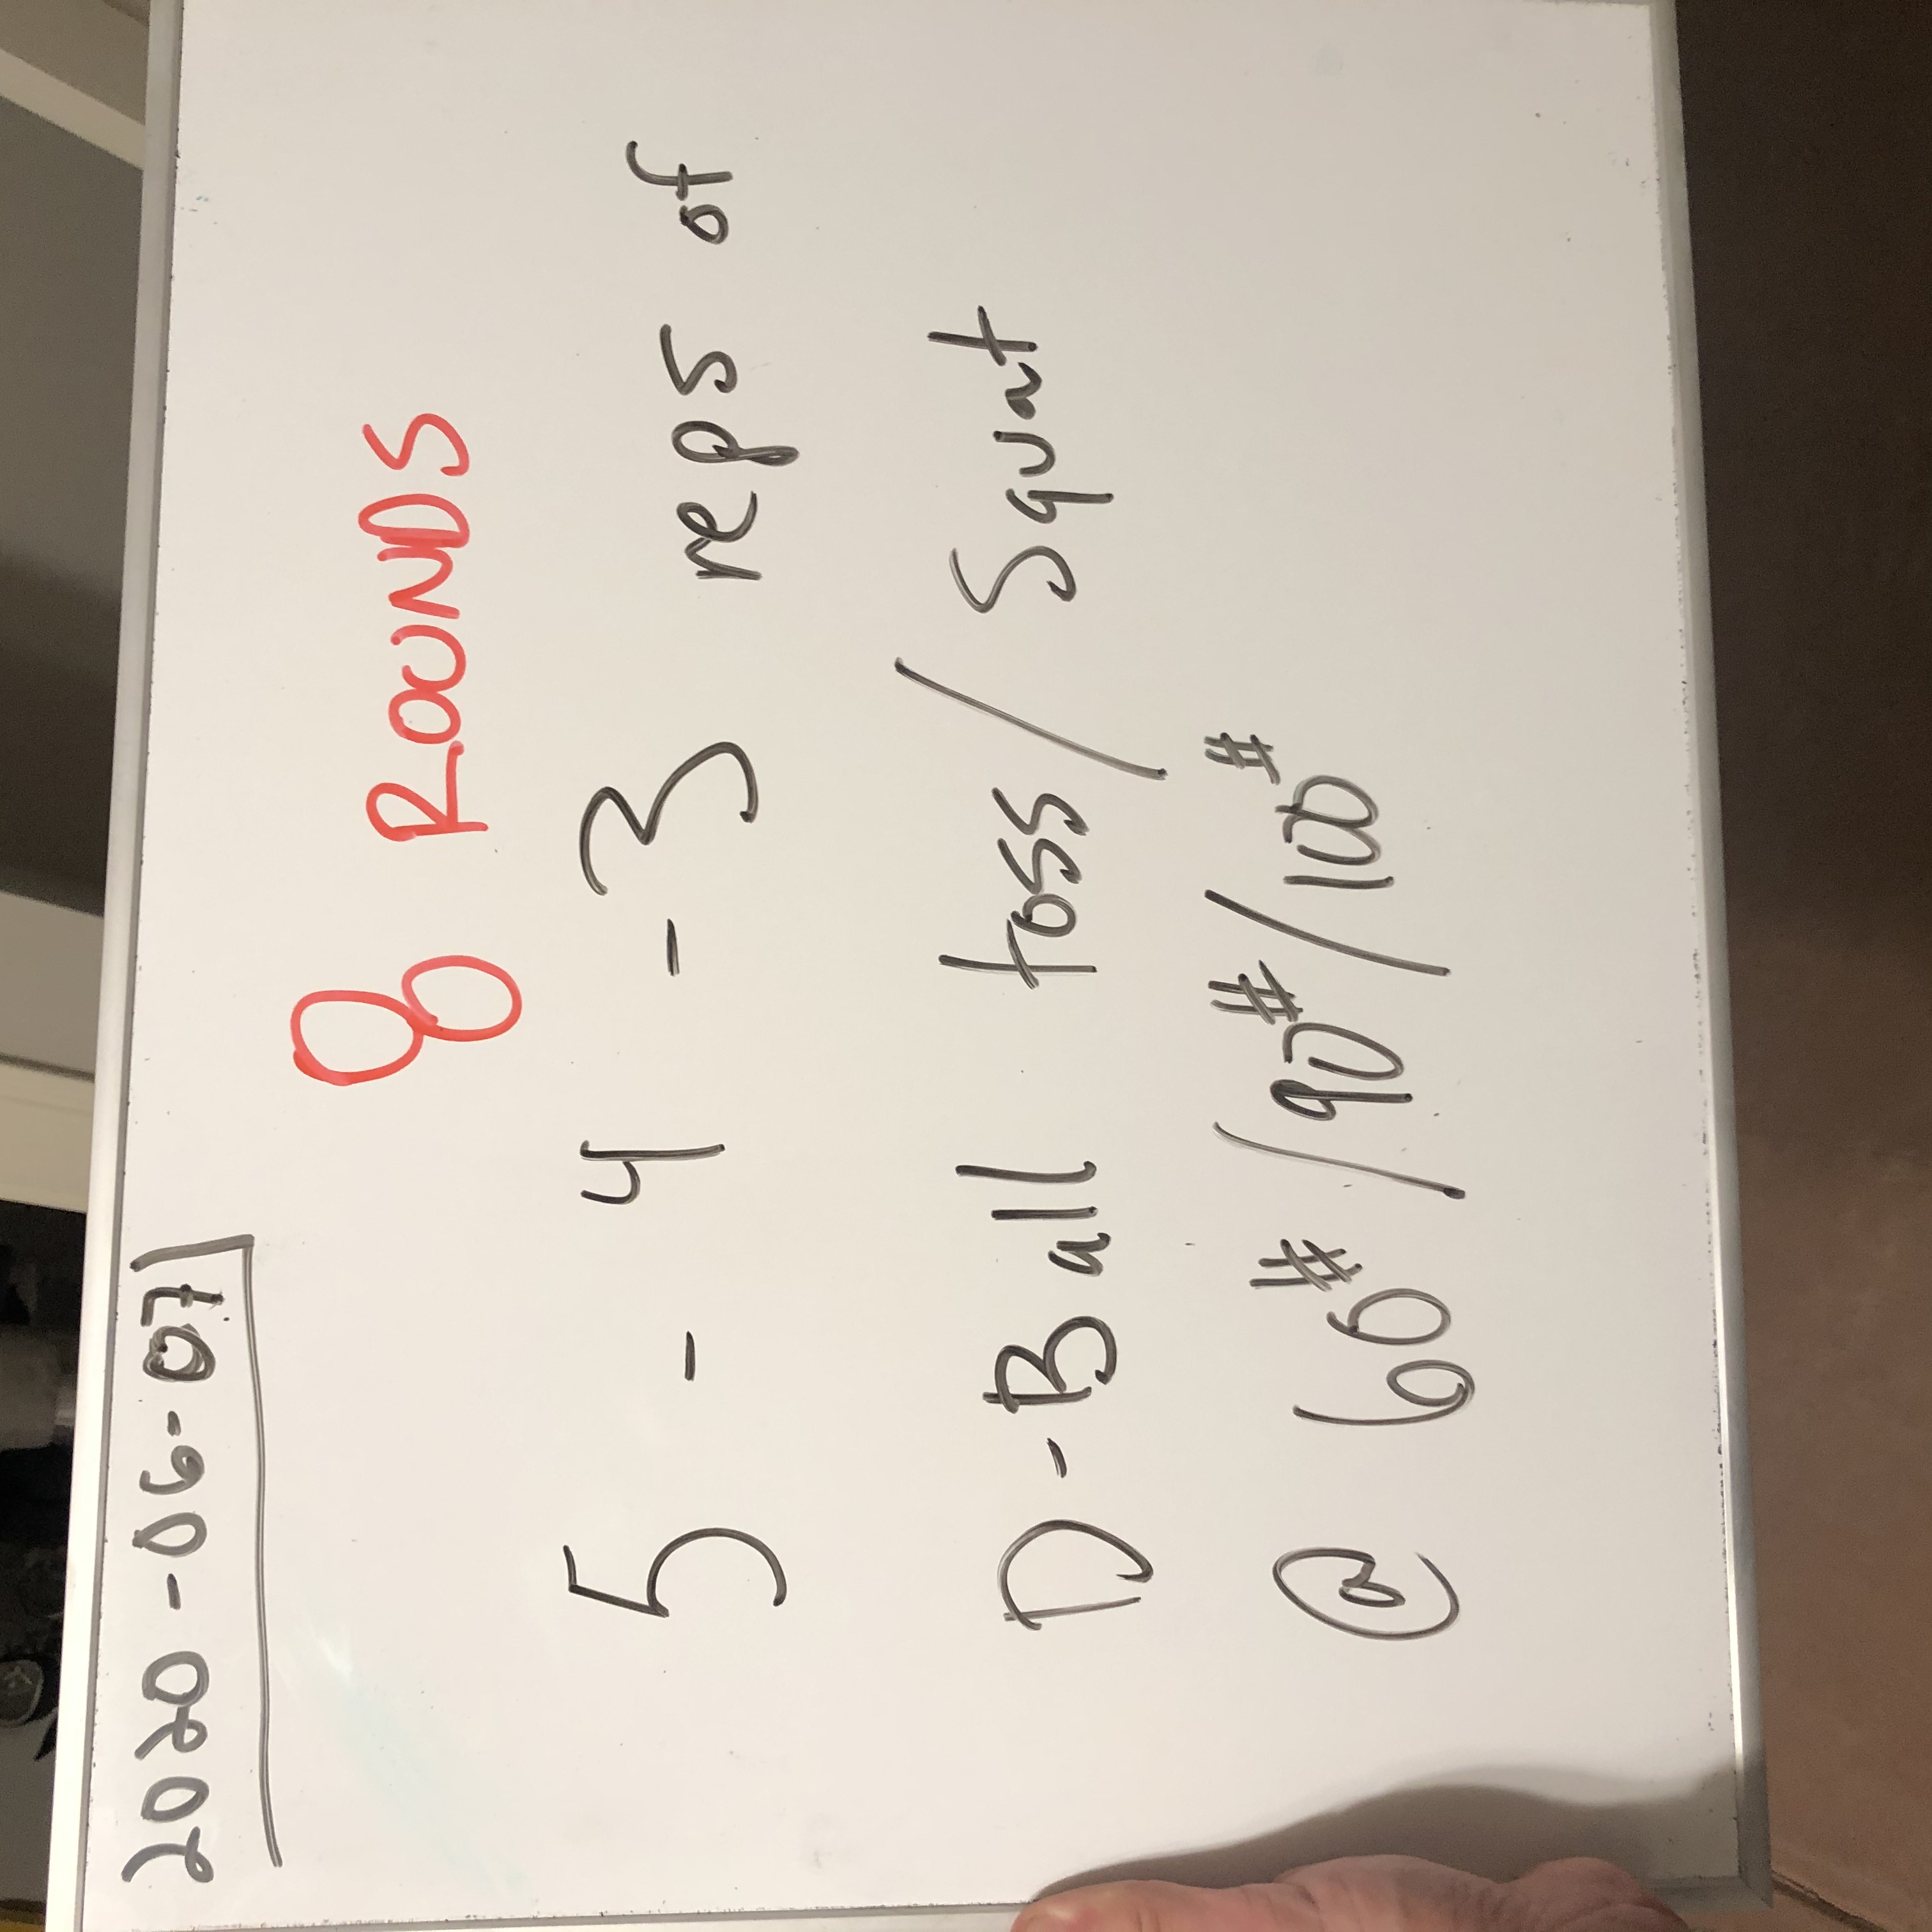 2020-06-07
8 ROUNDS
5 - 4 - 3 reps of
D-Ball toss/Squat
@ 60#/90#/100#